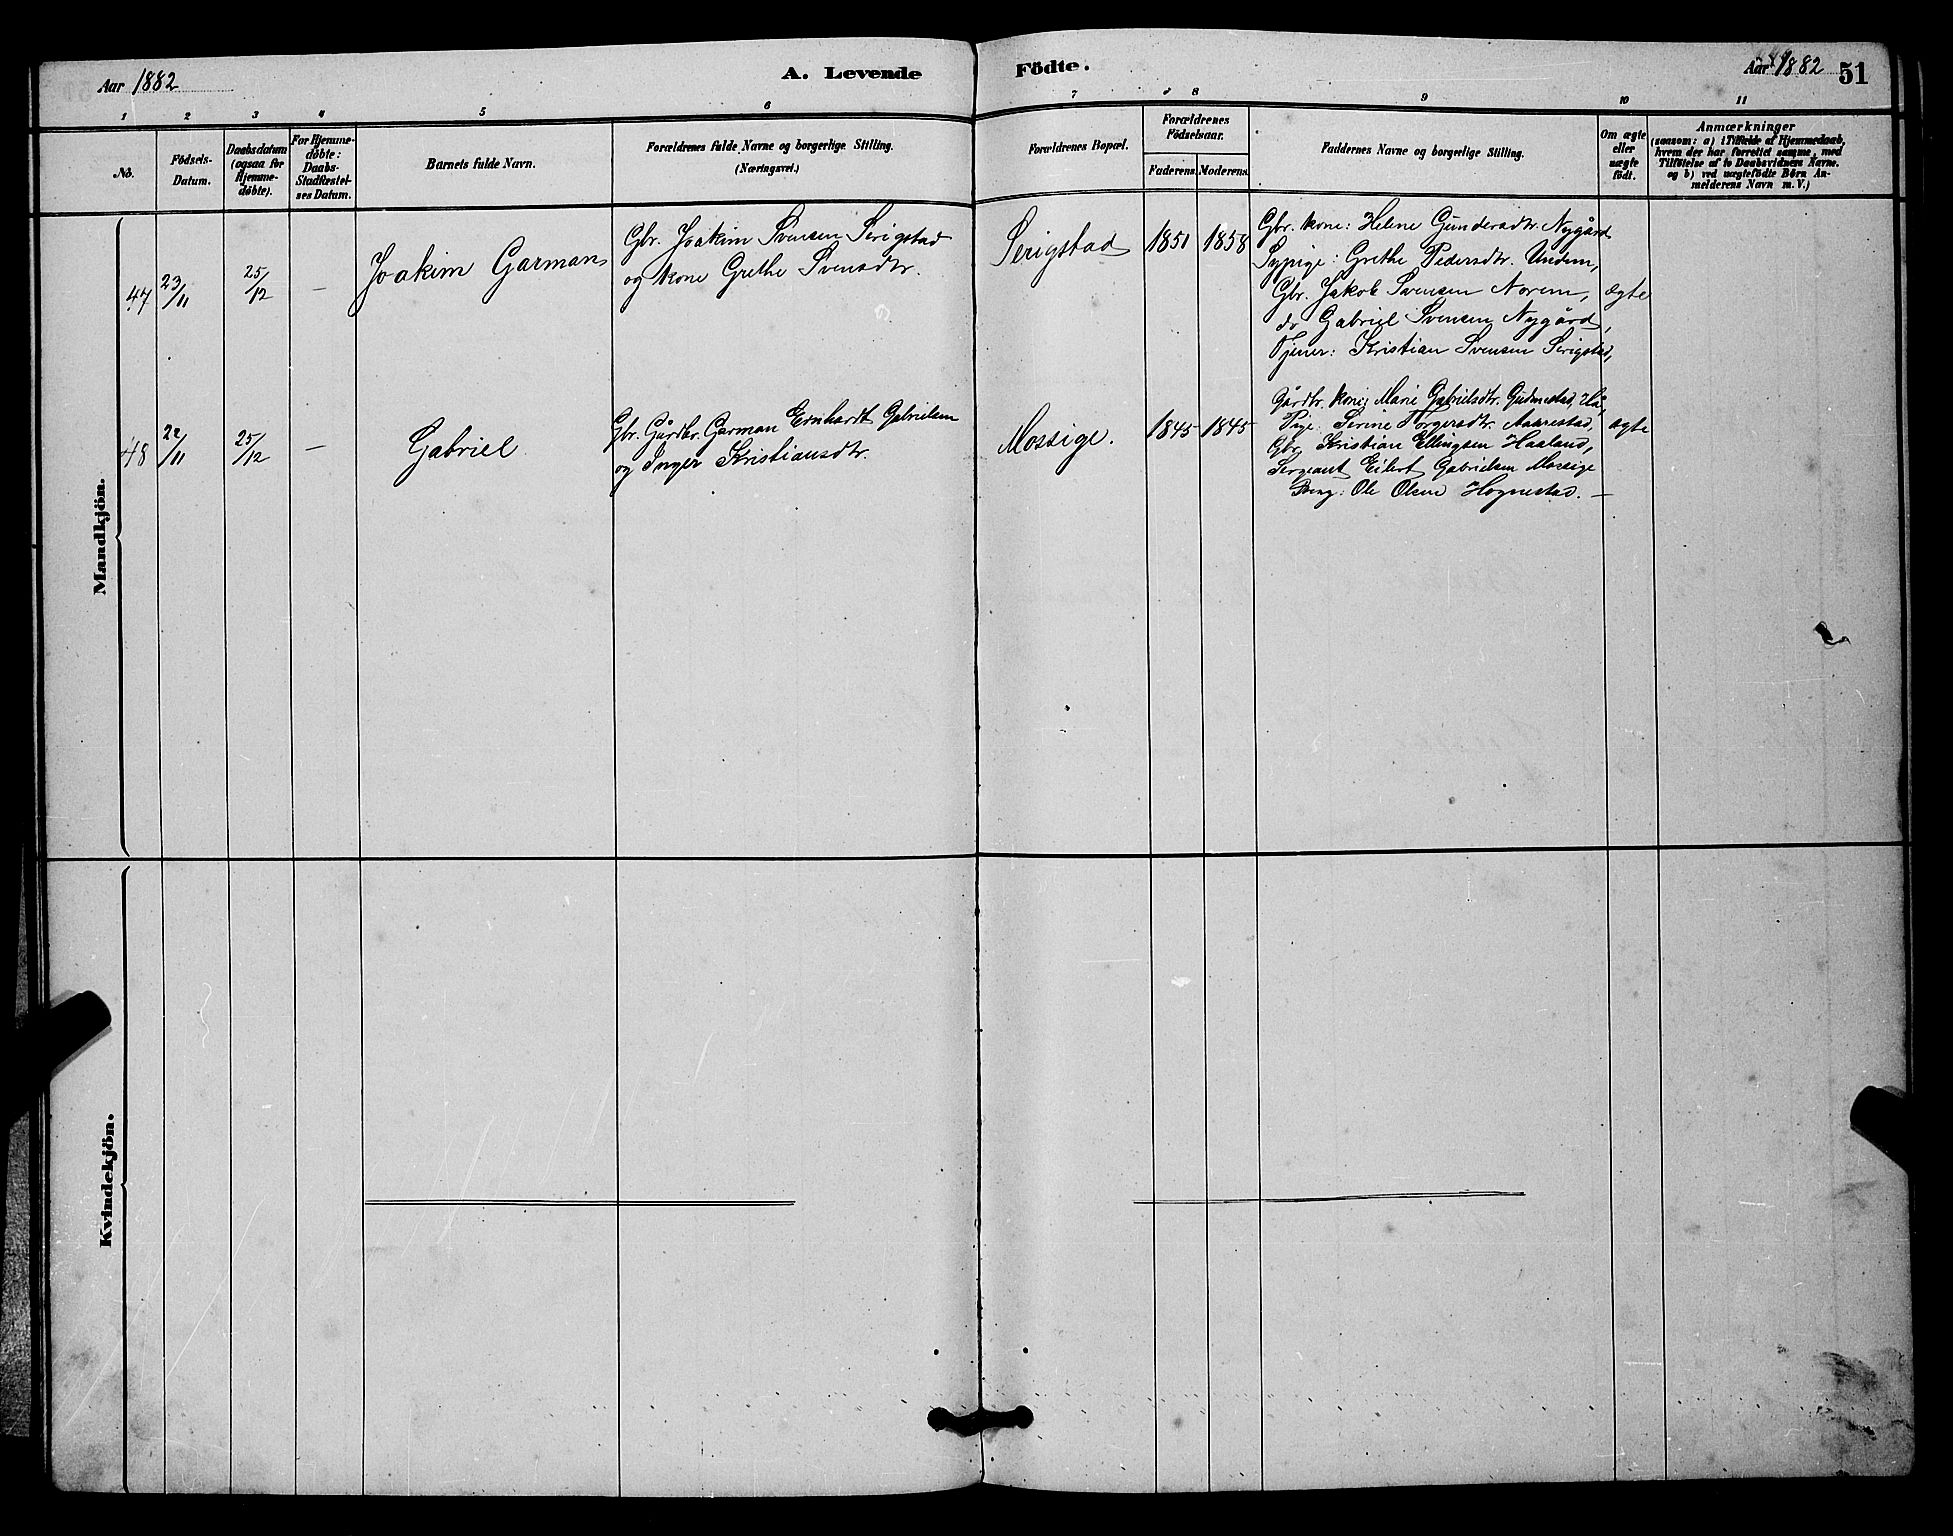 Aar 1882
A. Levende Födte.
Aar 1882 51
1 2 3 4 5 6 7 8 9 10 11
No.
Födsels-
Datum.
Daabsdatum
(ogsaa for
Hjemme-
døbte).
For Hjemme-
døbte:
Daabs-
Stadfæstel-
ses Datum.
Barnets fulde Navn.
Forældrenes fulde Navne og borgerlige Stilling.
(Næringsvei.)
Forældrenes Bopæl.
Forældrenes
Födselsaar.
Faderens. Moderens.
Faddernes Navne og borgerlige Stilling.
Om ægte
eller
uægte
født.
Anmærkninger
(saasom: a) i Tilfælde af Hjemmedaab,
hvem der har forrettet samme, med
Tilføielse af to Daabsvidners Navne.
og b) ved uægtefödte Börn An-
melderens Navn m. V.)
Mandkjön.
47 23/11 25/12 —
Joakim Garmann
Gbr. Joakim Svensen Serigstad
og kone Grethe Svensdtr.
Serigstad 1851 1858
Gbr. kone: Helene Gundersdtr. Nygård
Sypige: Grethe Pedersdtr. Undem,
Gbr. Jakob Svensen Norem,
do Gabriel Svensen Nygård,
Tjener: Kristian Svensen Serigstad,
ægte
48 22/11 25/12 —
Gabriel
Gbr. Gårdbr. Garman Ernhardt Gabrielsen
og Inger Kristiansdtr.
Mossige. 1845 1845
Gårdbr. kone: Marie Gabrielsdtr. Gudmestad, Hå,
Pige: Serine Torgersdtr. Aarrestad,
Gbr. Kristian Ellingsen Haaland,
Sergeant Eilert Gabrielsen Mossige
Ung: Ole Olsen Hognestad. —
ægte
Kvindekjön.